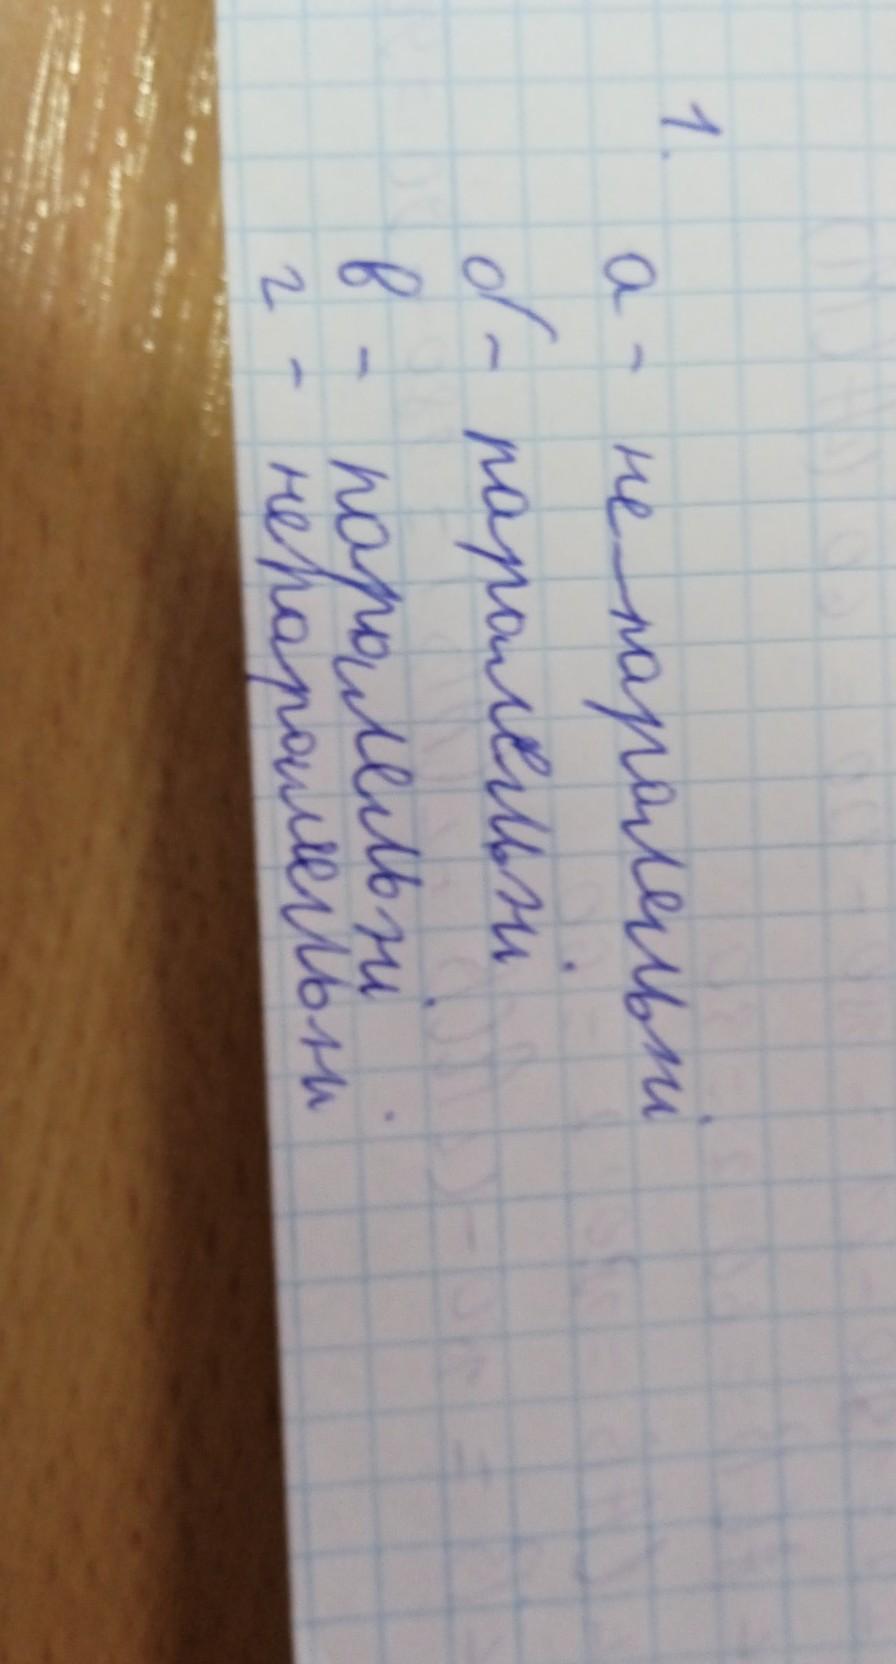 1.
а - не паралельні
б - паралельні
в - паралельні
г - непаралельні